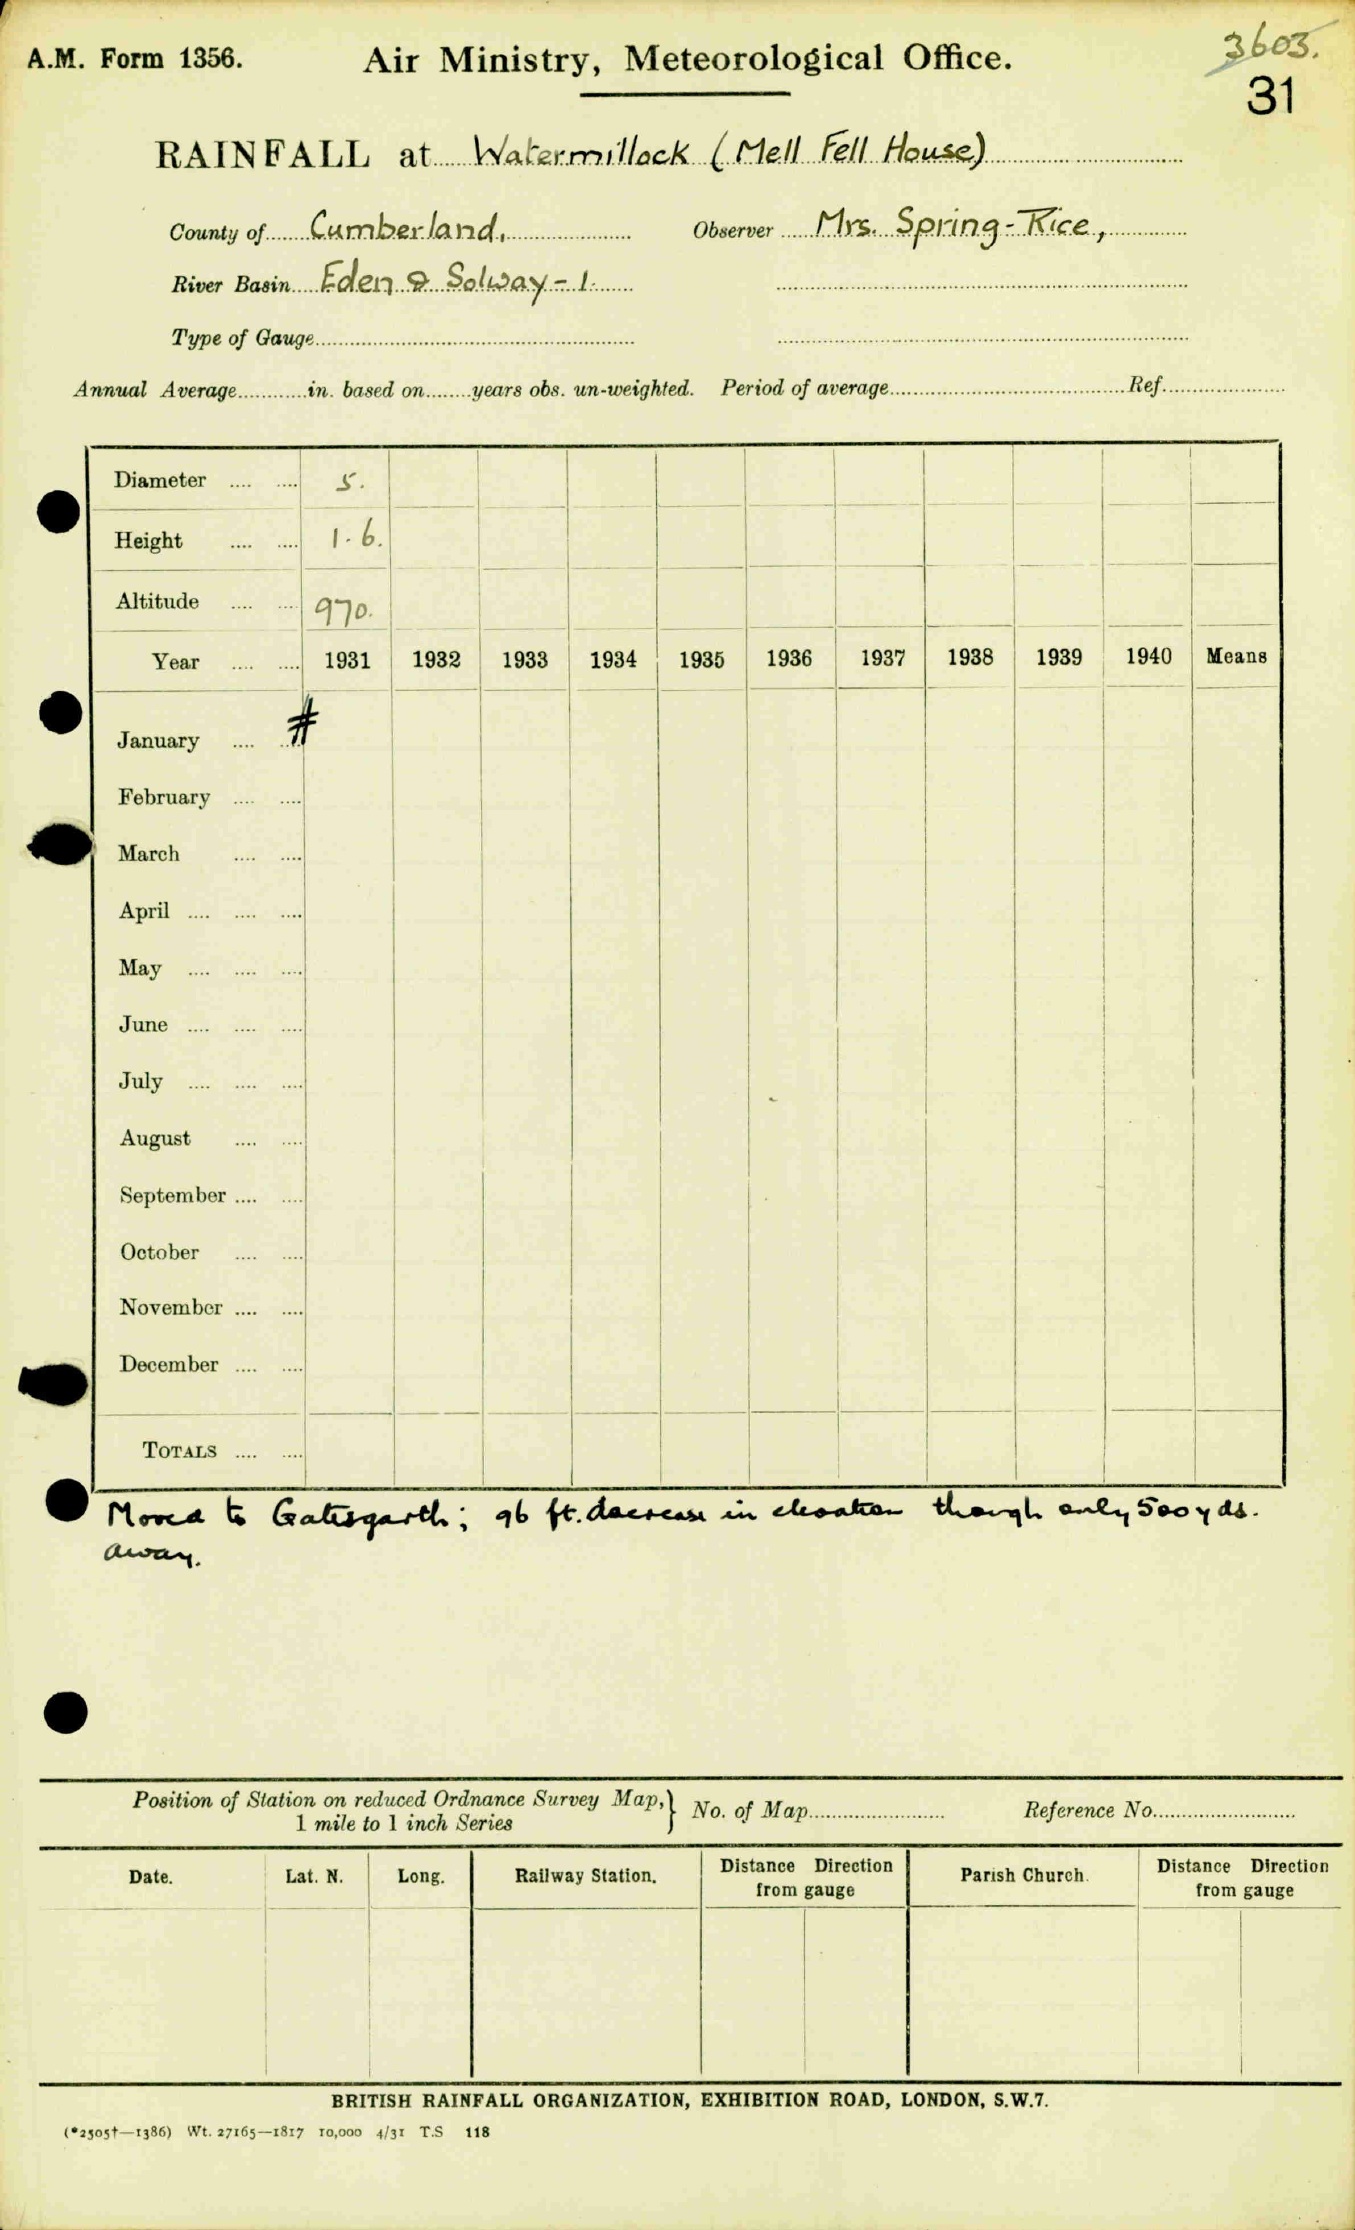 A.M. Form 1356.
Air Ministry, Meteorological Office.
3603.
31
RAINFALL at Watermillock (Mell Fell House)
County of Cumberland, Observer Mrs. Spring-Rice,
River Basin Eden & Solway - 1.
Type of Gauge
Annual Average in. based on years obs. un-weighted. Period of average Ref.
Diameter 5.
Height 1.6.
Altitude 970.
Year 1931 1932 1933 1934 1935 1936 1937 1938 1939 1940 Means
#
January
February
March
April
May
June
July
August
September
October
November
December
TOTALS
Moved to Gatesgarth; 96 ft. decrease in elevation though only 500 yds.
away.
Position of Station on reduced Ordnance Survey Map, } No. of Map Reference No.
1 mile to 1 inch Series
Date. Lat. N. Long. Railway Station. Distance Direction from gauge Parish Church. Distance Direction from gauge
BRITISH RAINFALL ORGANIZATION, EXHIBITION ROAD, LONDON, S.W.7.
(*2505†—1386) Wt. 27165—1817 10,000 4/31 T.S 118